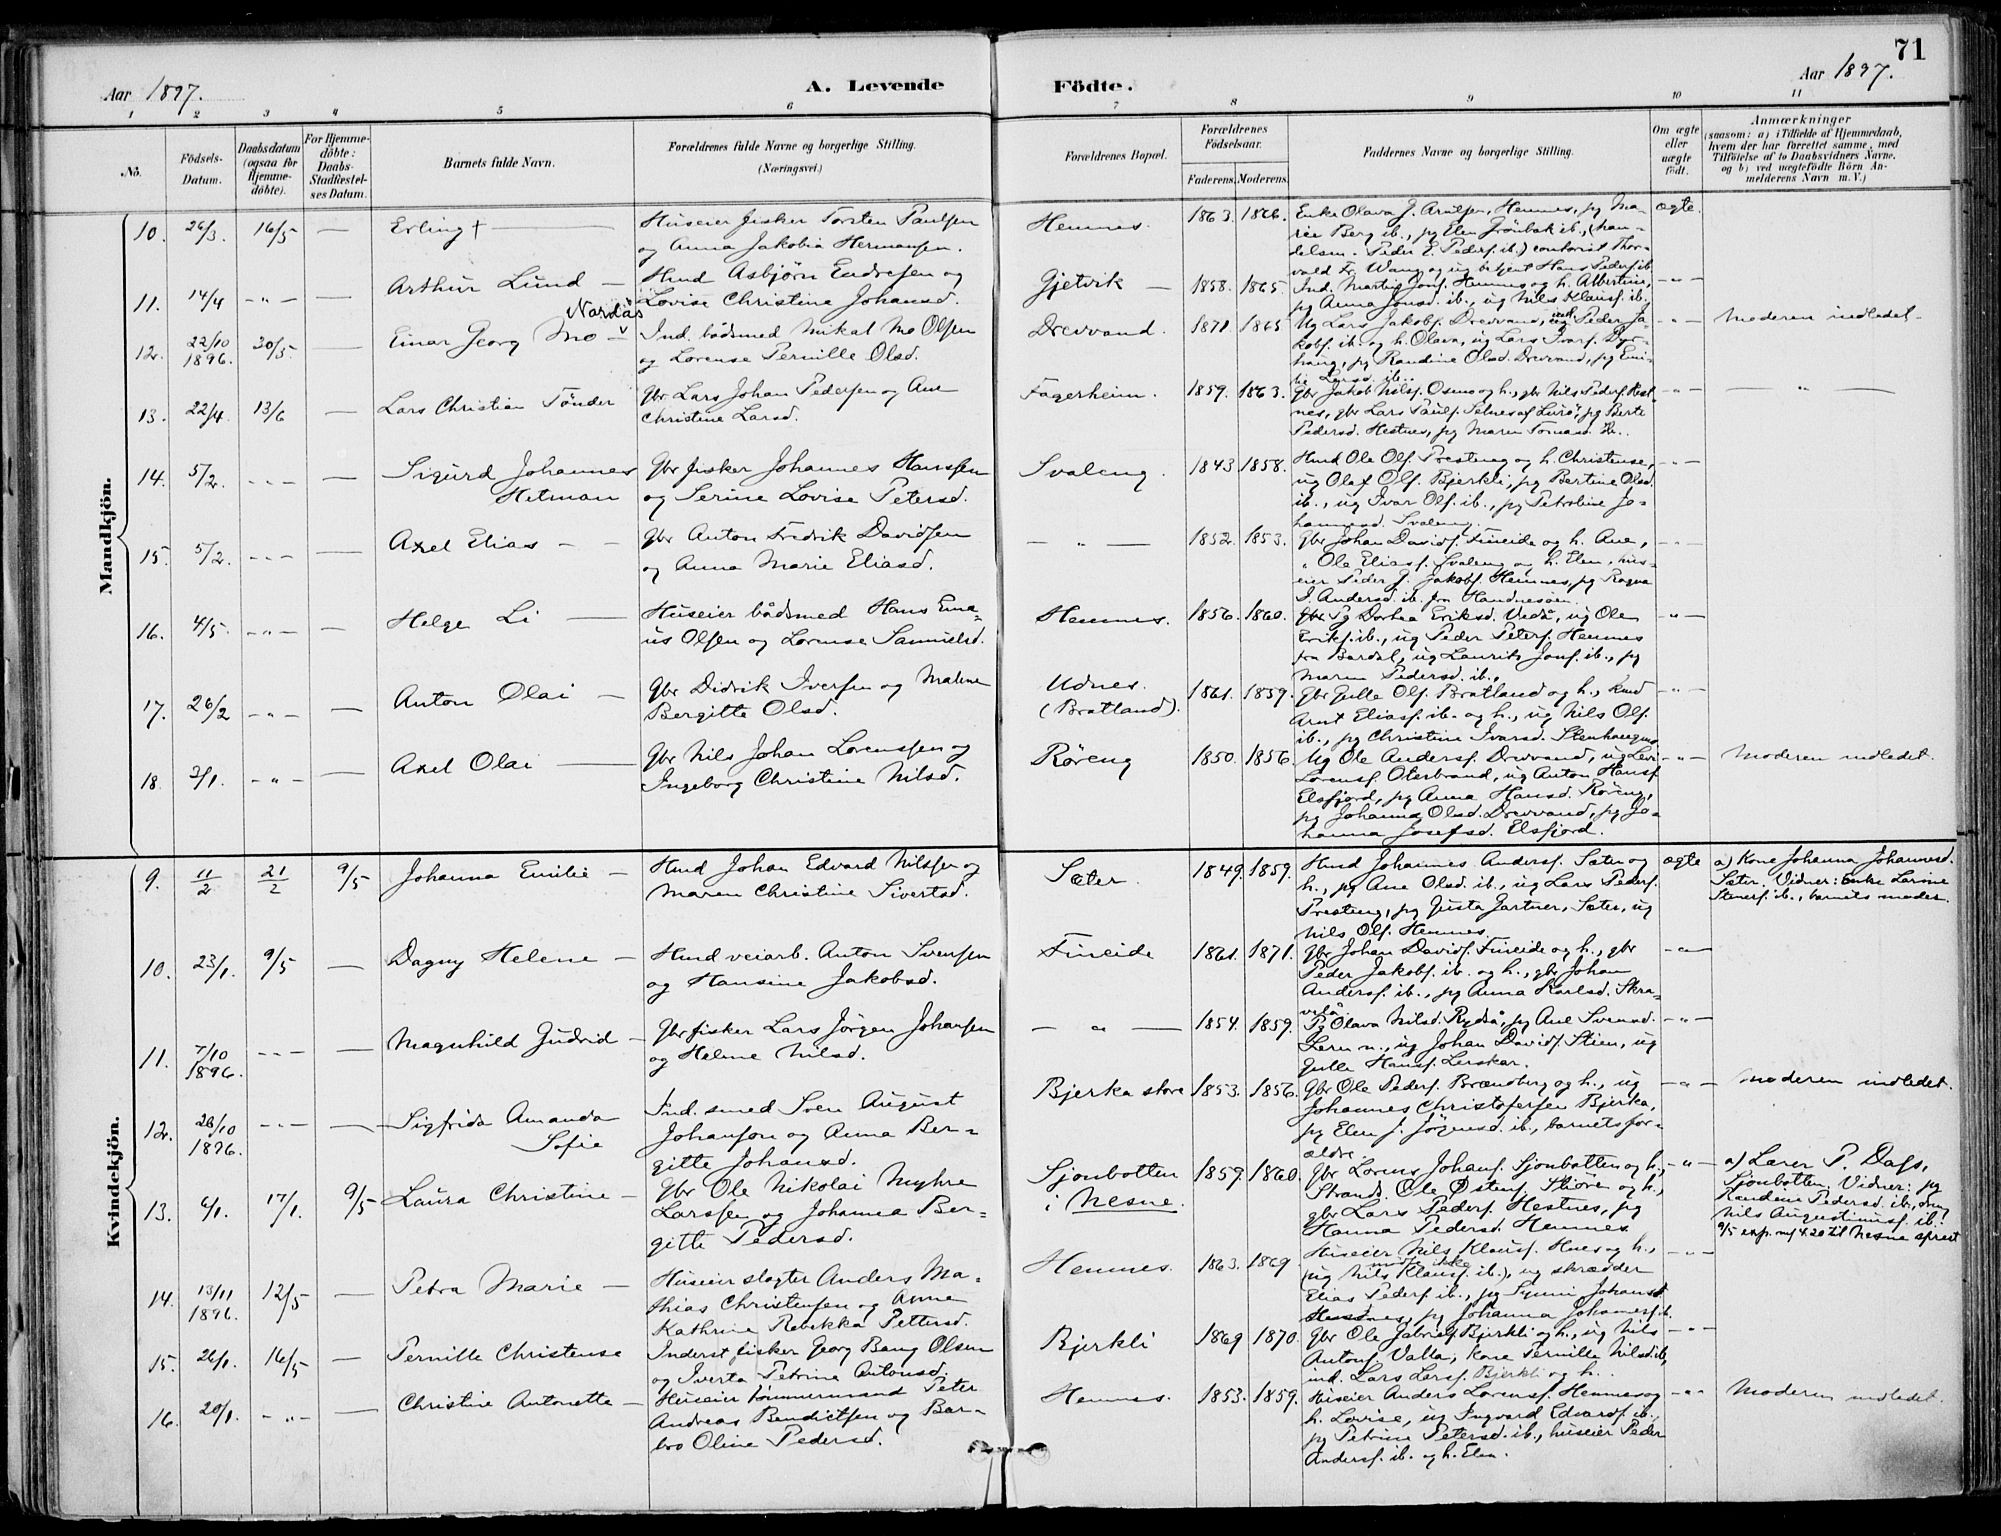 71
Aar 1897.
A. Levende Födte.
Aar 1897.
1 2 3 4 5 6 7 8 9 10 11
No.
Födsels-Datum.
Daabsdatum (ogsaa for Hjemmedöbte).
For Hjemmedöbte: Daabs-Stadfæstelses Datum.
Barnets fulde Navn.
Forældrenes fulde Navne og borgerlige Stilling.
(Næringsvei.)
Forældrenes Bopæl.
Forældrenes Födselsaar.
Faderens. Moderens.
Faddernes Navne og borgerlige Stilling.
Om ægte eller uægte födt.
Anmærkninger
(saasom: a) i Tilfælde af Hjemmedaab, hvem der har forrettet samme, med Tilföielse af to Daabsvidners Navne, og b) ved uægtefödte Börn Anmelderens Navn m. V.)
Mandkjön.
10. 26/3. 16/5 — Erling † —
Huseier fisker Torsten Paulsen
og Anna Jakobia Hermansen.
Hemnes. 1863. 1866.
Enke Olava J. Arntsen, Hemnes, pg Ma-
rie Berg ib., pg Elen Grönbæk ib., (han-
delsm. Peder E. Peders. ib.) contorist Thor-
vald Fr. Wang og ug betjent Hans Peders. ib.
ægte.
11. 14/4 - " - — Arthur Lund —
Kmd Asbjörn Endresen og
Lovise Christine Johansd.
Gjetvik — 1858. 1865.
Ind. Martin Jons. Hemnes og h. Albertine,
pg Anna Jonsd. ib., ug Nils Klausf. ib.
- " -
12. 22/10 1896. 30/5. — Einar Georg Mo
Nordås
Ind. bådsmed Mikal Mo Olsen
og Lorense Pernille Olsd.
Drevvand. 1871. 1865
Ug Lars Jakobs. Drevvand, Peder Ja-
kobs. ib. og h. Olava, ug Lars Ivars.
haug, pg Randine Olsd. Drevvand, pg Emi-
lie Larsd. ib.
- " - Moderen indledet.
13. 22/4. 13/6 — Lars Christian Tönder
Gbr Lars Johan Pedersen og Ane
Christine Larsd.
Fagerheim. 1859. 1863.
Gbr Jakob Nilsf. Osmo og h., gbr Nils Pedersf. Hest-
nes, gbr Lars Paulsf. Selnes af Lurö, pg Berte
Pedersd. Hestnes, pg Maren Tomasd. ib.
- " - — " —
14. 5/2. - " - — Sigurd Johannes
Hetman
Gbr fisker Johannes Hanssen
og Serine Lovise Petersd.
Svaleng. 1843 1858.
Kmd Ole Olsf. Presteng og h. Christense,
ug Olaf Olsf. Bjerkli, pg Bertine Olsd.
ib., ug Ivar Olsf. ib., pg Petroline Jo-
hannesd. Svaleng.
- " -
15. 5/2. - " - — Axel Elias - -
Gbr Anton Fredrik Davidsen
og Anna Marie Eliasd.
— " — 1852. 1853.
Gbr Johan Davidsf. Fineide og h. Ane,
" Ole Eliasf. Svaleng og h. Elen, hus-
eier Peder J. Jakobsf. Hemnes, pg Ragna
J. Andersd. ib. fra Handnesöen
- " -
16. 4/5. - " - — Helge Li —
Huseier bådsmed Hans Ema-
us Olsen og Lorense Samuelsd.
Hemnes. 1856. 1860.
Pg Dorthea Eriksd. Vedå, ug Ole
Eriksf. ib., ug Peder Petersf. Hemnes
fra Bardal, ug Laurits Jonsf. ib., pg
Maren Pedersd. ib.
- " -
17. 26/2 - " - — Anton Olai —
Gbr Didrik Iversen og Malene
Bergitte Olsd.
Udnes.
(Bratland). 1861. 1859.
Gbr Julle Olsf. Bratland og h., kmd
Arnt Eliasf. ib. og h., ug Nils Olsf.
ib., pg Christine Ivarsd. Stenhaugmo
- " -
18. 3/1. - " - — Axel Olai —
Gbr Nils Johan Lorenssen og
Ingeborg Christine Nilsd.
Röreng 1850. 1856.
Ug Ole Andersf. Drevvand, ug Levi
Lorensf. Oterbrand, ug Anton Hansf.
Elsfjord, pg Anna Hansd. Röreng,
pg Johanna Olsd. Drevvand, pg Jo-
hanna Josefsd. Elsfjord.
- " - Moderen indledet.
Kvindekjön.
9. 11/2 21/2 9/5 Johanna Emilie —
Kmd Johan Edvard Nilssen og
Maren Christine Sivertsd.
Sæter. 1849. 1859.
Kmd Johannes Andersf. Sæter og
h., pg Ane Olsd. ib., ug Lars Pedersf.
Presteng, pg Justa Gartner, Sæter, ug
Nils Olsf. Hemnes.
ægte
a) Kone Johanna Johannesd.
Sæter. Vidner: enke Larine
Stenersf. ib., barnets moder.
10. 23/1. 9/5 — Dagny Helene —
Kmd veiarb. Anton Svensen
og Hansine Jakobsd.
Fineide 1861. 1871.
Gbr Johan Davidsf. Fineide og h., gbr
Peder Jakobsf. ib. og h., gbr Johan
Andersf. ib., pg Anna Karlsd. Skra-
velå.
- " -
11. 7/10 1896. - " - — Magnhild Gudrid —
Gbr fisker Lars Jörgen Johansen
og Helene Nilsd.
— " — 1854. 1859.
Pg Olava Nilsd. Rydså, pg Ane Svensd.
Leren n., ug Johan Davidsf. Stien, ug
Julle Hansf. Lerskar.
- " -
12. 28/10 1896. - " - — Sigfrida Amanda
Sofie
Ind. smed Sven August
Johanson og Anna Ber-
gitte Johansd.
Bjerka store 1853. 1856.
Gbr Ole Pedersf. Brændberg og h., ug
Johannes Christofersen Bjerka,
pg Elen J. Jörgensd. ib., barnets for-
ældre.
- " - Moderen indledet.
13. 6/1. 17/1. 9/5 Laura Christine —
Gbr Ole Nikolai Myhre
Larssen og Johanna Ber-
gitte Pedersd.
Sjonbotten
i Nesne. 1859. 1860.
Gbr Lorens Johansf. Sjonbotten og h.,
Strands. Ole Østensf. Stiöre og h.,
gbr Lars Pedersf. Hestnes, pg
Hanna Pedersd. Hemnes
- " -
a) Lærer P. Dass,
Sjonbotten. Vidner: pg
Handine Pedersd. ib., dreng
Nils Augustinusf. ib.
9/5 exp. no 420 til Nesne sprest
14. 13/11 1896. 12/5 — Petra Marie —
Huseier slagter Anders Ma-
thias Christensen og Anne
Kathrine Rebekka Pettersd.
Hemnes. 1863. 1869.
Huseier Nils Klausf. Hnes og h.,
(ug Nils Klausf. ib.), ug skrædder
mötte ikke
Elias Pedersf. ib., pg Synni Johansd.
Hemnes, pg Johanna Johannesf. ib.
- " -
15. 26/1. 16/5 — Pernille Christense
Inderst fisker Georg Bang Olsen
og Iverta Petrine Antonsd.
Bjerkli 1869 1870.
Gbr Ole Gabrielsf. Bjerkli og h., ug Nils
Antonsf. Valla, kone Pernille Nilsd. ib.,
ind. Lars Larsf. Bjerkli og h.
- " -
16. 20/1. - " - — Christine Antonette —
Huseier tömmermand Peter
Andreas Bendictsen og Bar-
bro Oline Pedersd.
Hemnes. 1853. 1859.
Huseier Anders Lorensf. Hemnes og
h. Lovise, ug Ingvard Edvardsf. ib.,
pg Petrine Petersd. ib., huseier Peder
Andersf. ib. og h. Elen.
- " - Moderen indledet.